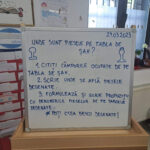 29.03.2023
UNDE SUNT PIESELE PE TABLA DE
ȘAH?
1. CITIȚI CÂMPURILE OCUPATE DE PE
TABLA DE ȘAH.
2. SCRIE UNDE SE AFLĂ PIESELE
DESENATE.
3. FORMULEAZĂ ȘI SCRIE PROPOZIȚII
CU DENUMIRILE PIESELOR DE PE TABLELE
DESENATE.
POȚI CREA BENZI DESENATE!